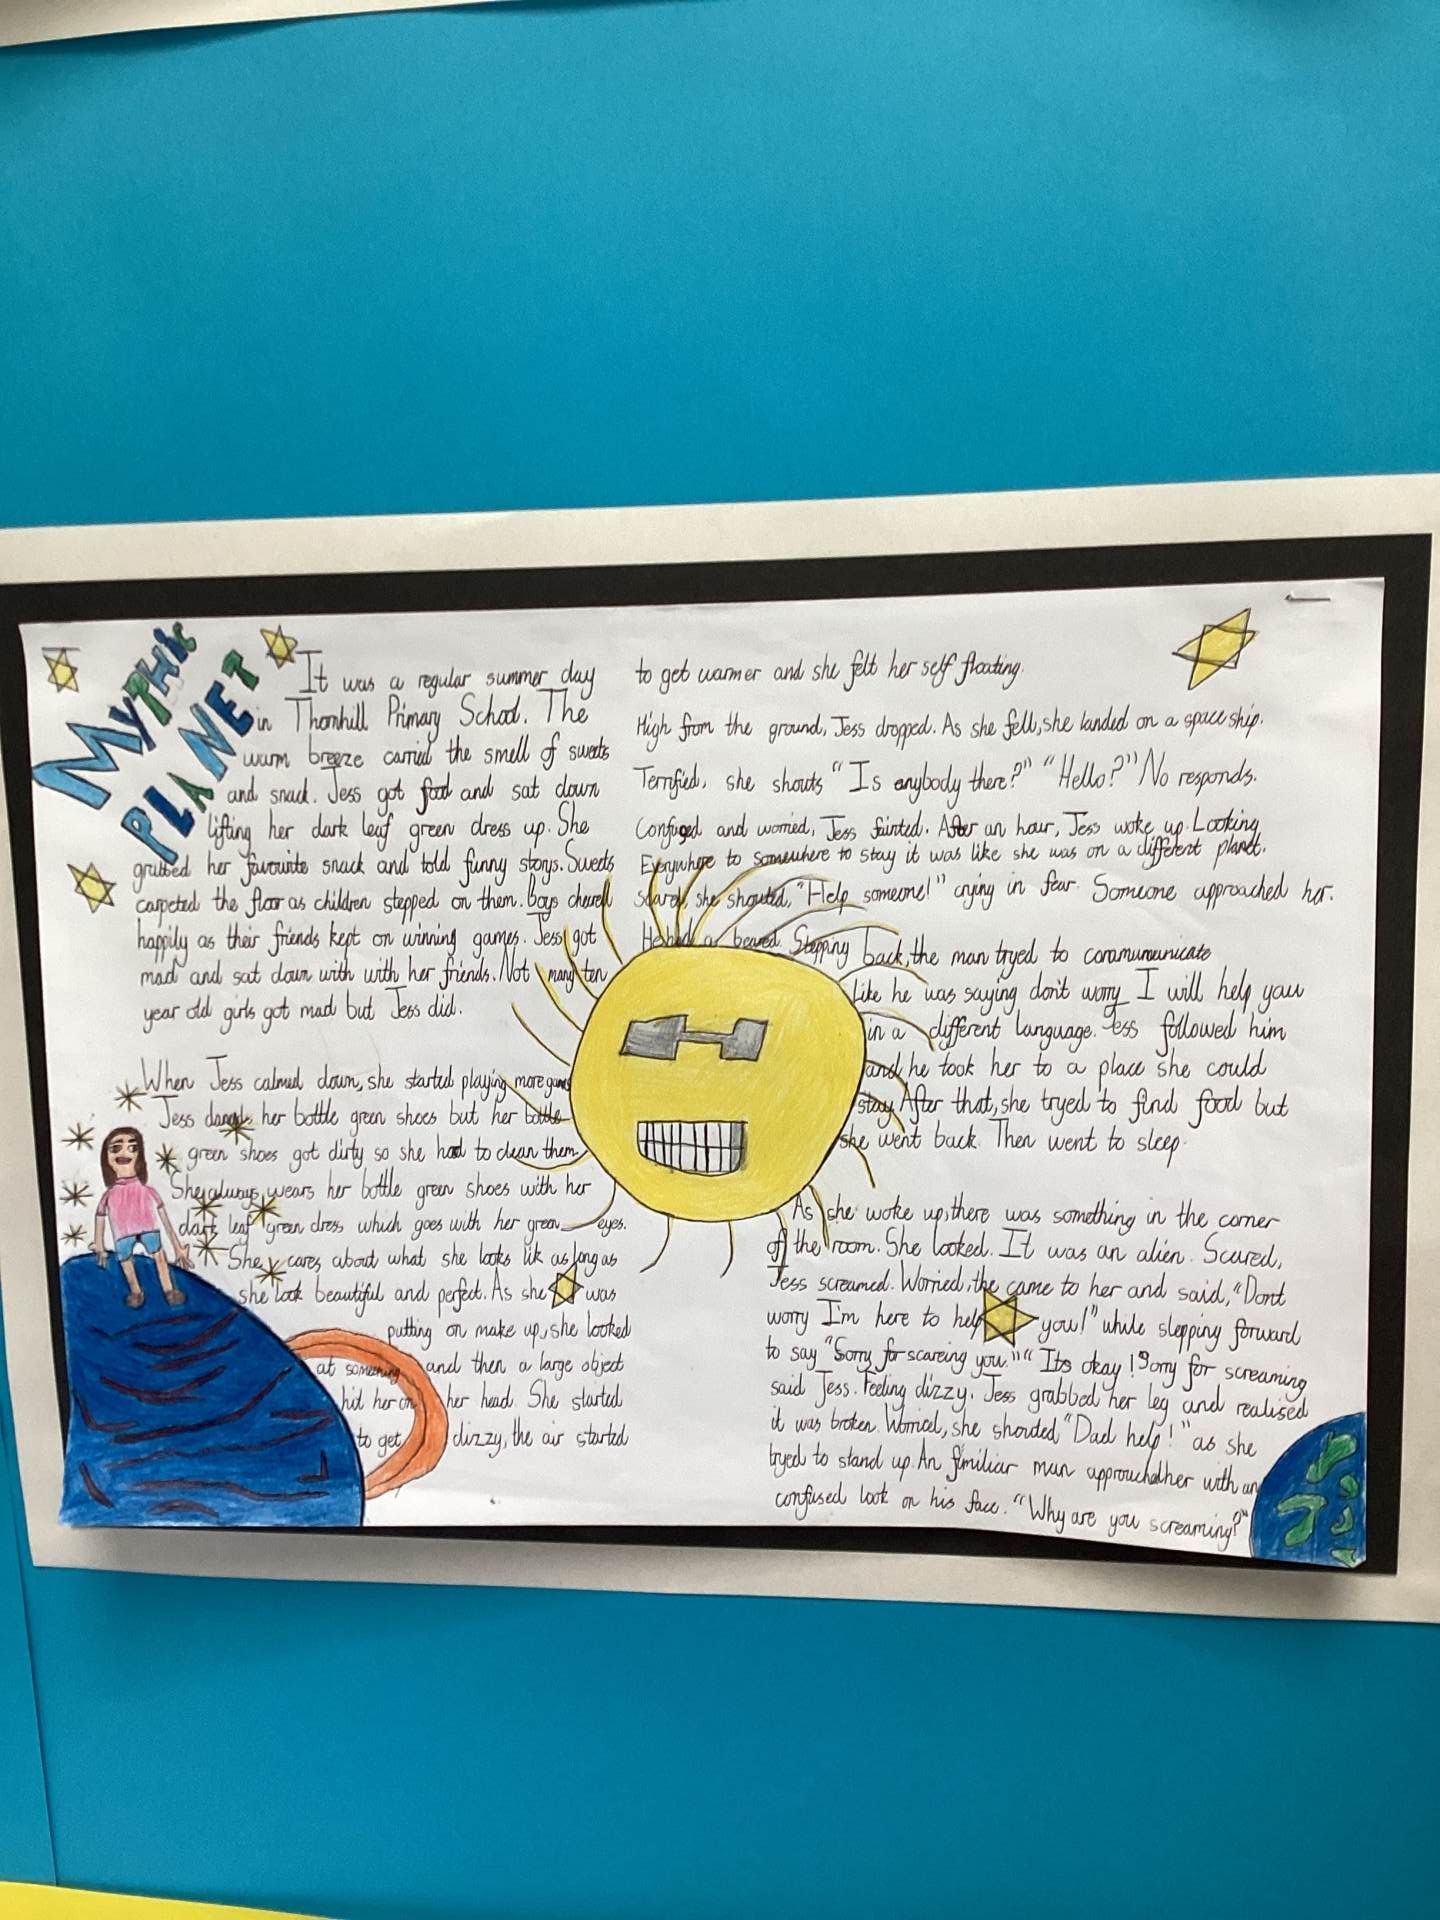 MYTHIC
PLANET
It was a regular summer day
in Thornhill Primary School. The
warm breeze carried the smell of sweets
and snack. Jess got food and sat down
lifting her dark leaf green dress up. She
grabbed her favourite snack and told funny storys. Sweets
carpeted the floor as children stepped on them. Boys cheered
happily as their friends kept on winning games. Jess got
mad and sat down with with her friends. Not many ten
year old girls got mad but Jess did.
When Jess calmed down, she started playing more games
Jess her bottle green shoes but her bottle
green shoes got dirty so she had to clean them.
She always wears her bottle green shoes with her
dark leaf green dress which goes with her green eyes.
She cares about what she looks lik as long as
she look beautiful and perfect. As she was
putting on make up, she looked
at something and then a large object
hit her on her head. She started
to get dizzy, the air started
to get warmer and she felt her self floating.
High from the ground, Jess dropped. As she fell, she landed on a space ship.
Terrified, she shouts "Is anybody there?" "Hello?" No responds.
Confused and worried, Jess fainted. After an hour, Jess woke up. Looking
Everywhere to somewhere to stay it was like she was on a different planet.
scared, she shouted, "Help someone!" crying in fear. Someone approached her.
He had a beared. Stepping back, the man tryed to
like he was saying don't worry I will help you
in a different language. Jess followed him
and he took her to a place she could
stay. After that, she tryed to find food but
she went back. Then went to sleep.
As she woke up, there was something in the corner
of the room. She looked. It was an alien. Scared,
Jess screamed. Worried, the came to her and said, "Dont
worry I'm here to help you!" while stepping forward
to say "Sorry for scareing you." "Its okay! Sorry for screaming
said Jess. Feeling dizzy, Jess grabbed her leg and realised
it was broken. Worried, she shouted "Dad help!" as she
tryed to stand up. An fimiliar man approached her with an
confused look on his face. "Why are you screaming?"